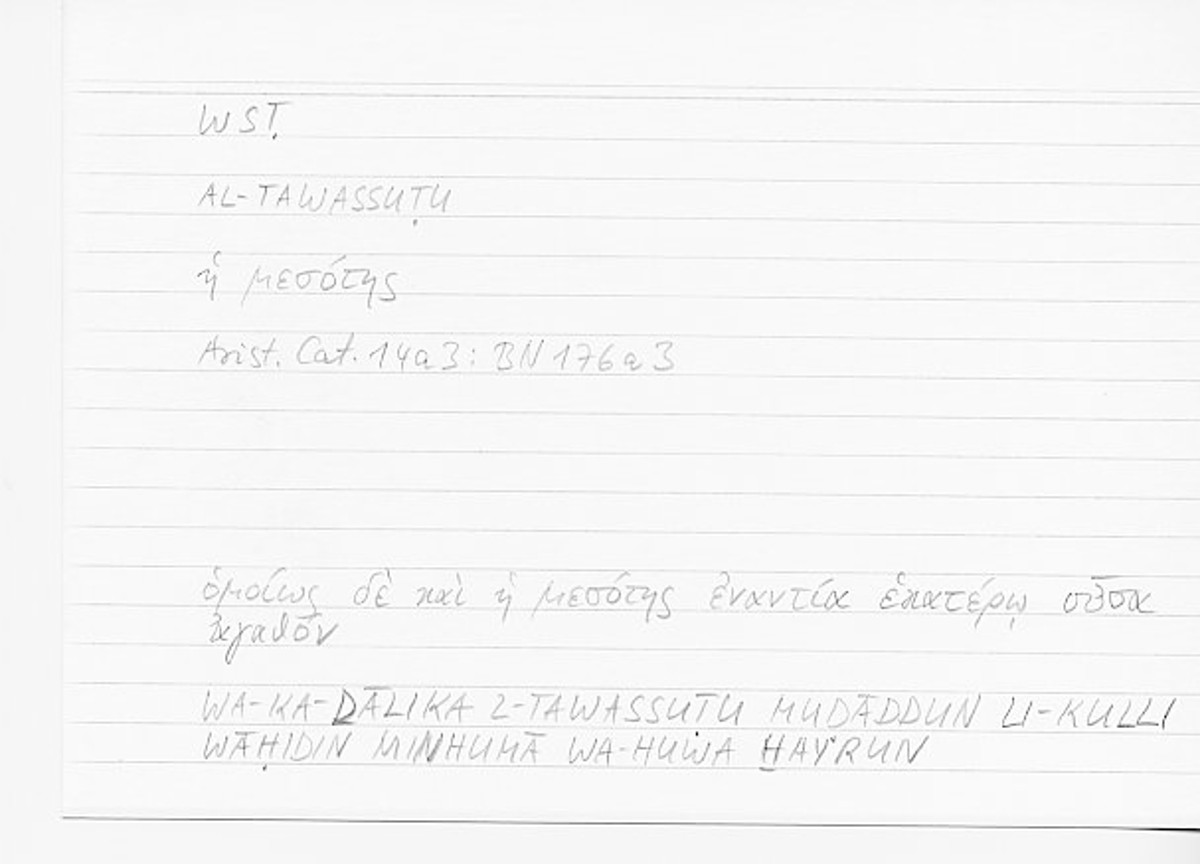 WSṬ
AL-TAWASSUṬU
ἡ μεσότης
Arist. Cat. 14a3: BN 176a3
ὁμοίως δὲ καὶ ἡ μεσότης ἐναντία ἑκατέρῳ οὖσα
ἀγαθόν
WA-KA-ḎĀLIKA L-TAWASSUṬU MUḌĀDDUN LI-KULLI
WĀḤIDIN MINHUMĀ WA-HUWA ḪAYRUN